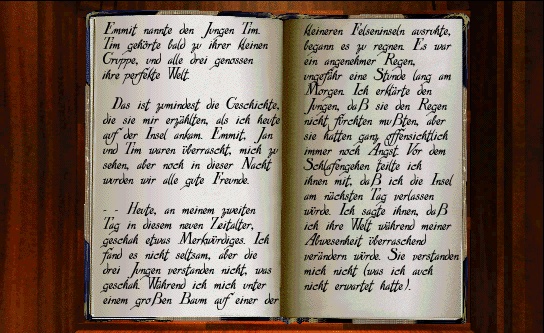 Emmit nannte den Jungen Tim.
Tim gehörte bald zu ihrer kleinen
Gruppe, und alle drei genossen
ihre perfekte Welt.
Das ist zumindest die Geschichte,
die sie mir erzählten, als ich heute
auf der Insel ankam. Emmit, Jan
und Tim waren überrascht, mich zu
sehen, aber noch in dieser Nacht
wurden wir alle gute Freunde.
- - Heute, an meinem zweiten
Tag in diesem neuen Zeitalter,
geschah etwas Merkwürdiges. Ich
fand es nicht seltsam, aber die
drei Jungen verstanden nicht, was
geschah. Während ich mich unter
einem großen Baum auf einer der
kleineren Felseninseln ausruhte,
begann es zu regnen. Es war
ein angenehmer Regen,
ungefähr eine Stunde lang am
Morgen. Ich erklärte den
Jungen, daß sie den Regen
nicht fürchten mußten, aber
sie hatten ganz offensichtlich
immer noch Angst. Vor dem
Schlafengehen teilte ich
ihnen mit, daß ich die Insel
am nächsten Tag verlassen
würde. Ich sagte ihnen, daß
ich ihre Welt während meiner
Abwesenheit überraschend
verändern würde. Sie verstanden
mich nicht (was ich auch
nicht erwartet hatte).